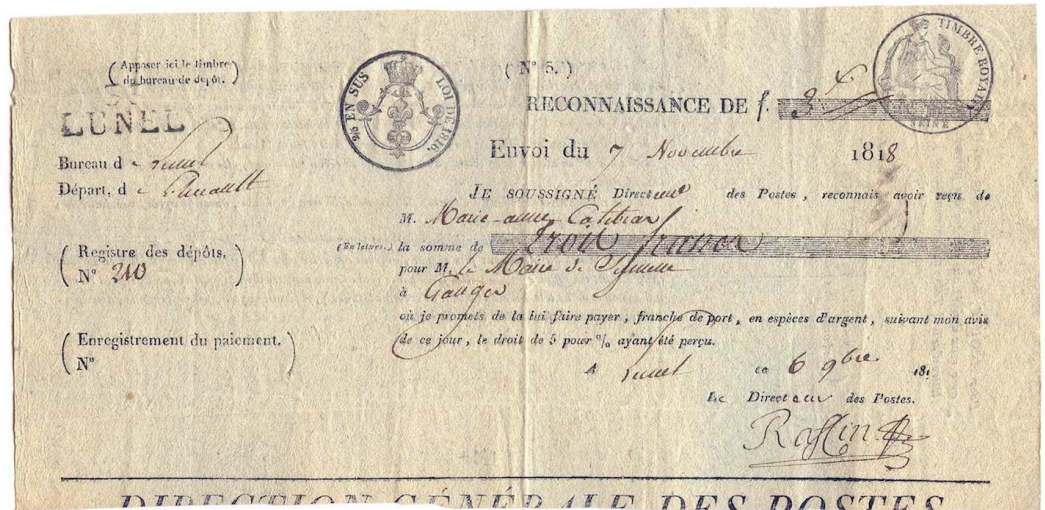 (Apposer ici le timbre
du bureau de dépôt.)
LUNEL
Bureau d e Lunel
Départ, d e l'hérault
(Registre des dépôts.
N° 210)
(Enregistrement du paiement.
N°)
2/10 EN SUS LOI DE 1816.
TIMBRE ROYAL
SEINE
(N° 5.)
RECONNAISSANCE DE f. 3
Envoi du 7 Novembre 1818
JE SOUSSIGNÉ Directeur des Postes, reconnais avoir reçu de
M. Marie-anne
(En lettres.) la somme de trois francs
pour M. le Maire de
à Ganges
où je promets de la lui faire payer, franche de port, en espèces d'argent, suivant mon avis
de ce jour, le droit de 5 pour % ayant été perçu.
A Lunel ce 6 9bre 181
Le Directeur des Postes.
DIRECTION GÉNÉRALE DES POSTES